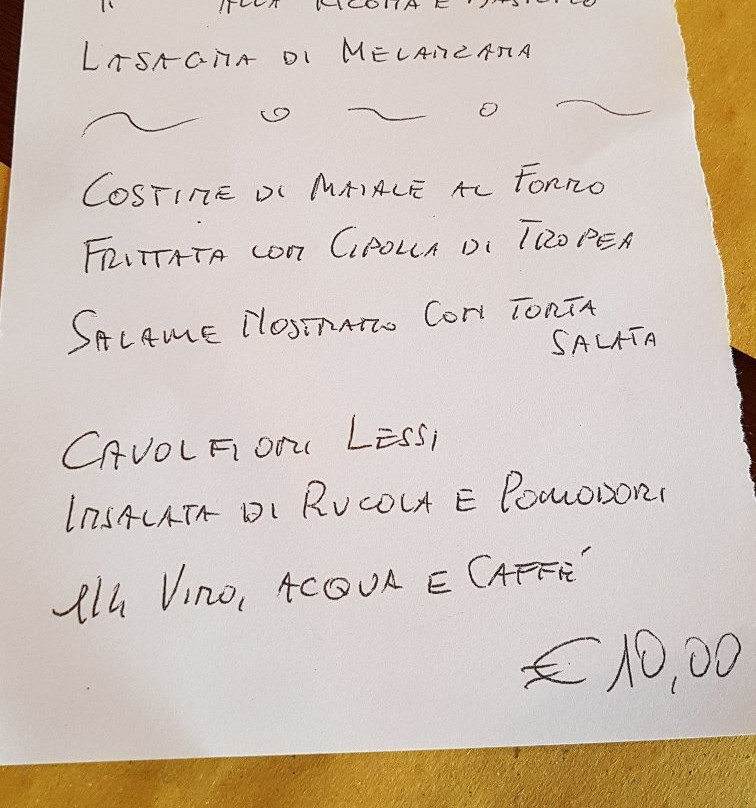 ALLA RICOTTA E BASILICO
LASAGNA DI MELANZANA
COSTINE DI MAIALE AL FORNO
FRITTATA CON CIPOLLA DI TROPEA
SALAME NOSTRANO CON TORTA
SALATA
CAVOLFIORI LESSI
INSALATA DI RUCOLA E POMODORI
1/4 VINO, ACQUA E CAFFE'
€ 10,00